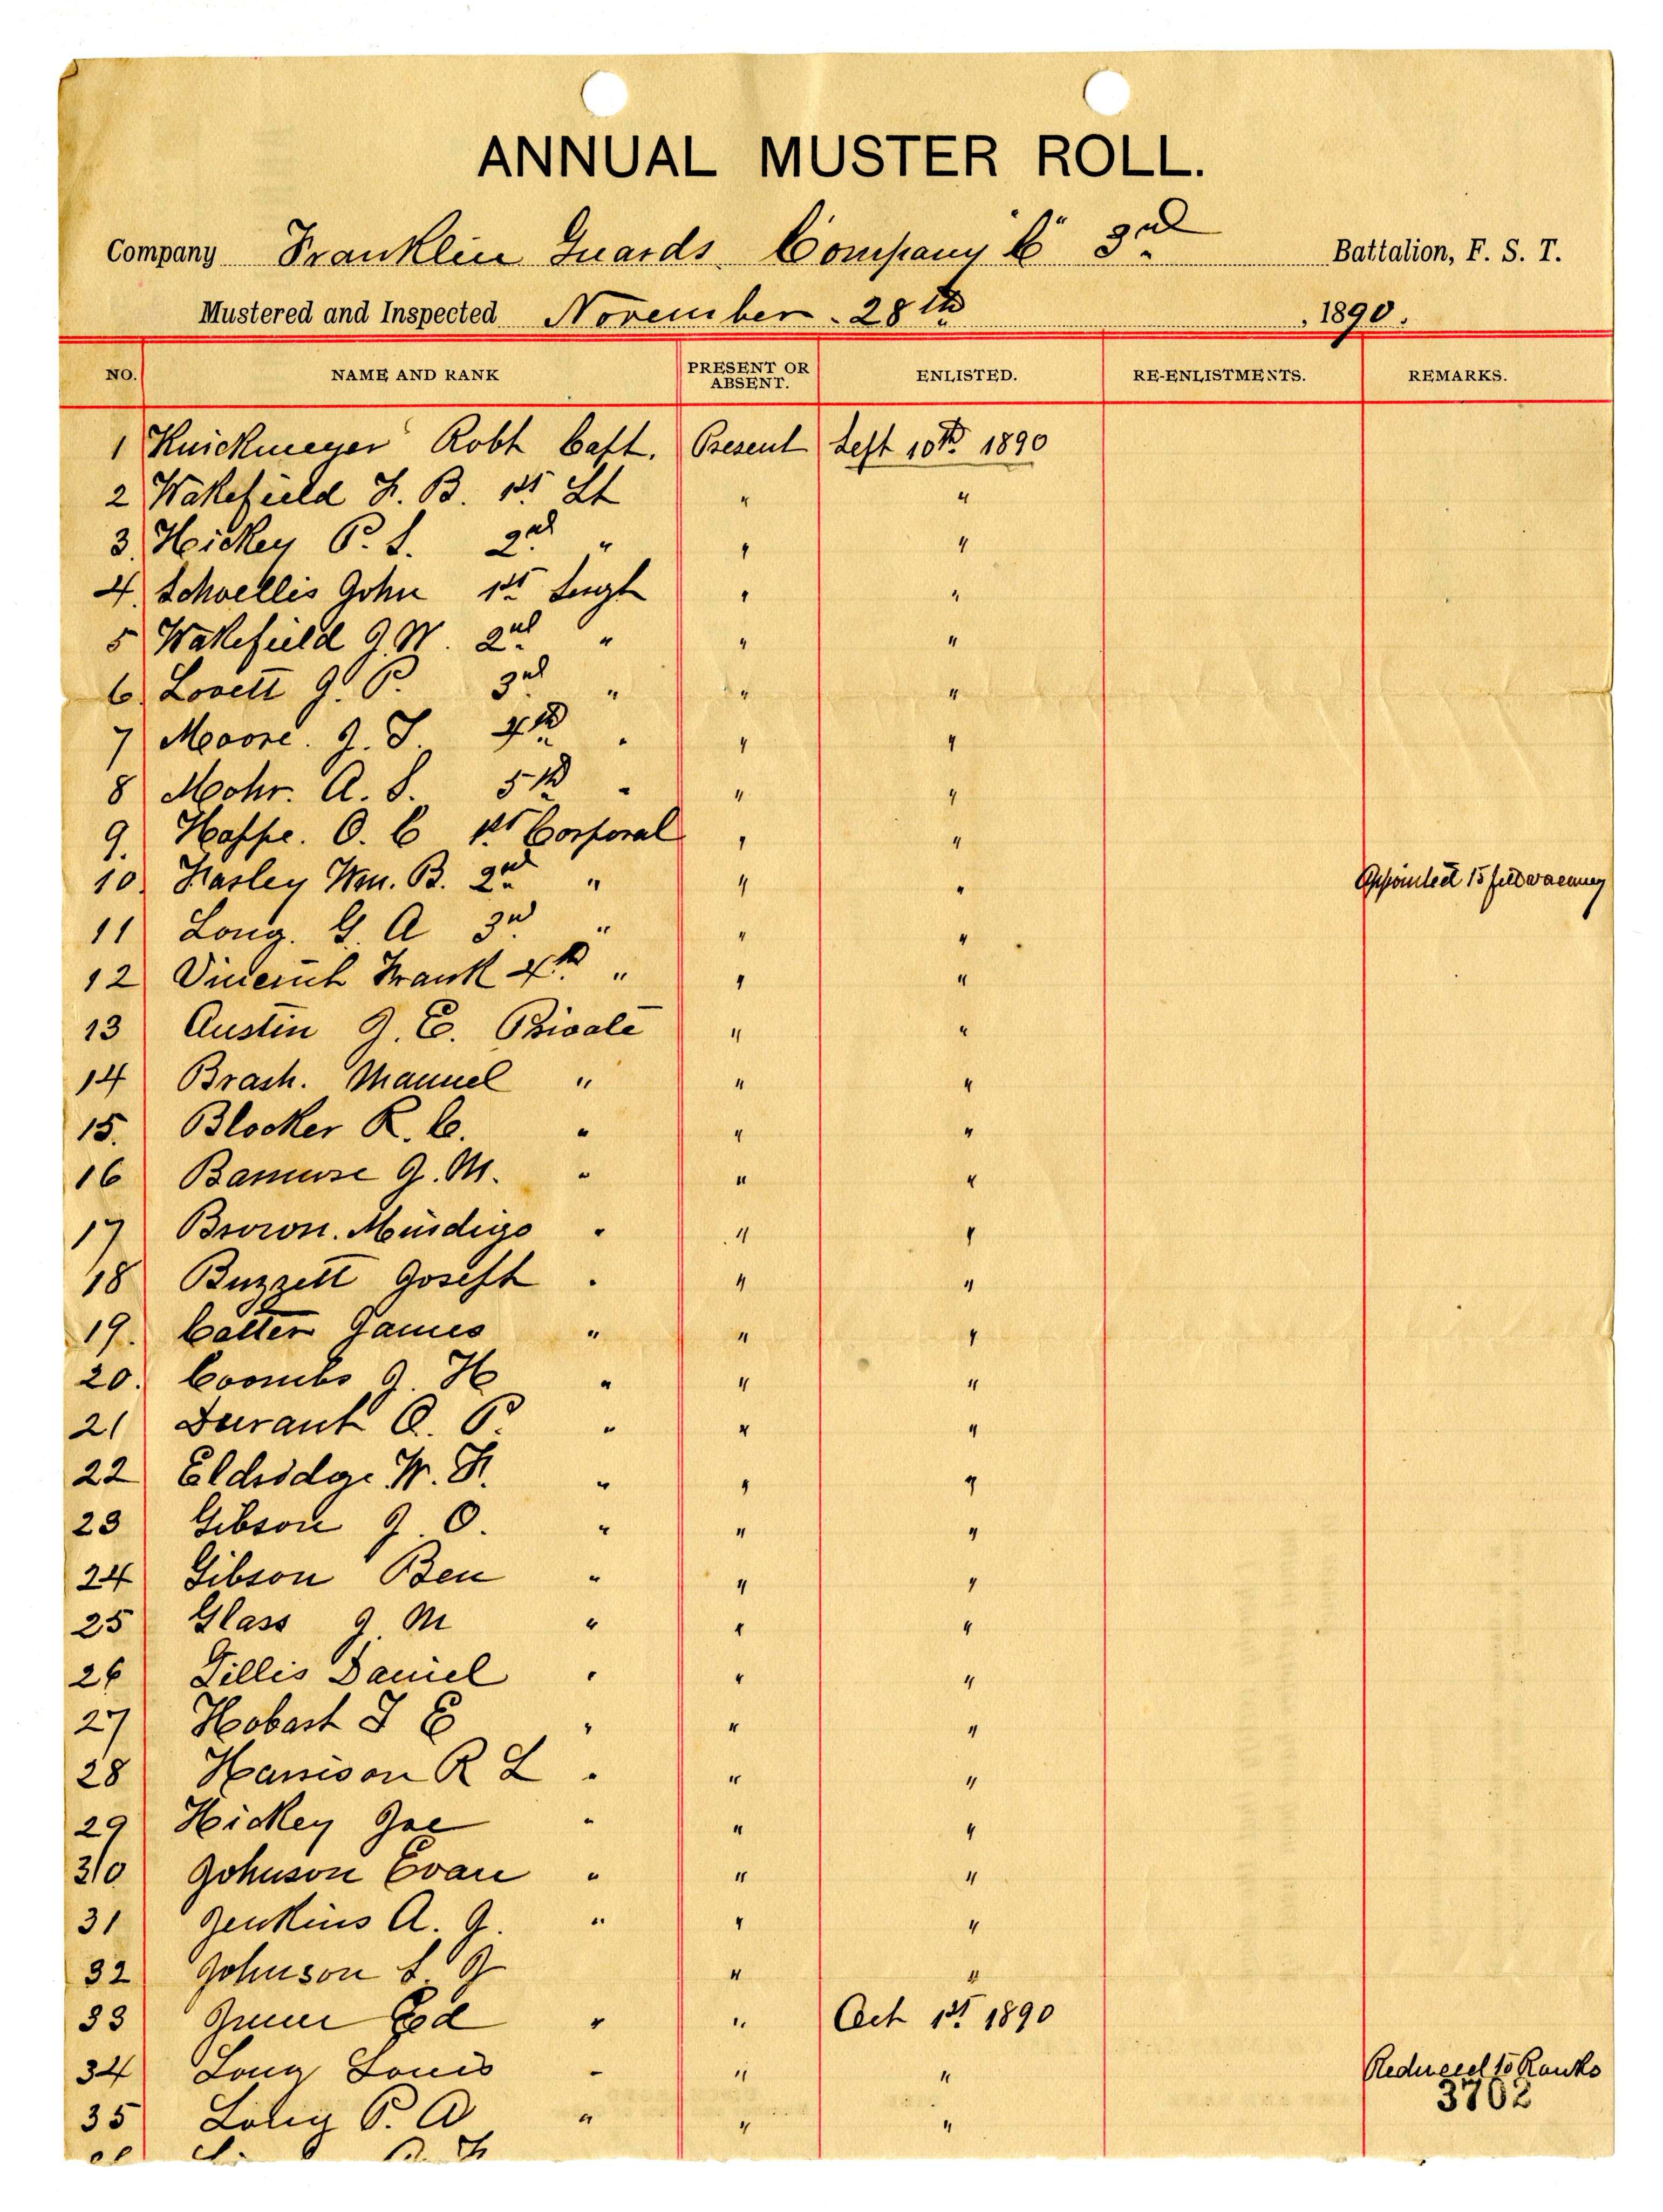 ANNUAL MUSTER ROLL.
Company Franklin Guards Company "C" 3rd Battalion, F. S. T.
Mustered and Inspected November 28th, 1890.
NO. NAME AND RANK PRESENT OR ABSENT. ENLISTED. RE-ENLISTMENTS. REMARKS.
1 Knickmeyer Robt Capt. Present Sept 10th 1890
2 Wakefield H. B. 1st Lt " "
3. Hickey P. S. 2nd " " "
4. Schoellis John 1st Sergt " "
5 Wakefield J. W. 2nd " " "
6. Lovett J. P. 3rd " " "
7 Moore. J. T. 4th " " "
8 Mohr. A. S. 5th " " "
9. Hoppe. O. C 1st Corporal " "
10. Hasley Wm. B. 2nd " " " Appointed to fill vacancy
11 Long. G. A 3rd " " "
12 Frank 4th " " "
13 Austin J. E. Private " "
14 Brash. Manuel " " "
15. Blocker R. C. " " "
16 J. M. " " "
17 Brown. " " "
18 Buzzett Joseph " " "
19. James " " "
20. Coombs J. H " " "
21 Durant O. P. " " "
22 Eldridge W. H. " " "
23 Gibson J. O. " " "
24 Gibson Ben " " "
25 Glass J. M " " "
26 Gillis Daniel " " "
27 Hobart J E " " "
28 Harrison R L " " "
29 Hickey Joe " " "
30 Johnson Evan " " "
31 Jenkins A. J. " " "
32 Johnson S. J " "
33 Ed " " Oct 1st 1890
34 Long Louis " " " Reduced to Ranks
3702
35 Long P. A " " "